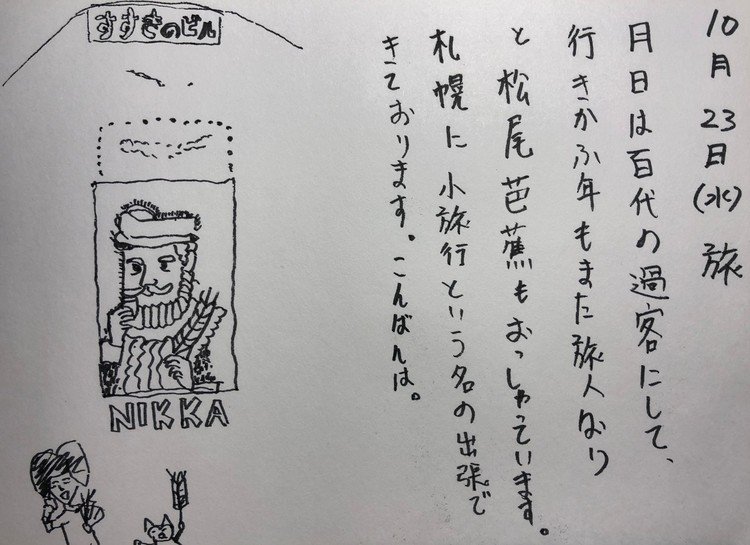 10月23日(水) 旅
月日は百代の過客にして、
行きかふ年もまた旅人なり
と松尾芭蕉もおっしゃっています。
札幌に小旅行という名の出張で
きております。こんばんは。
すすきのビル
NIKKA